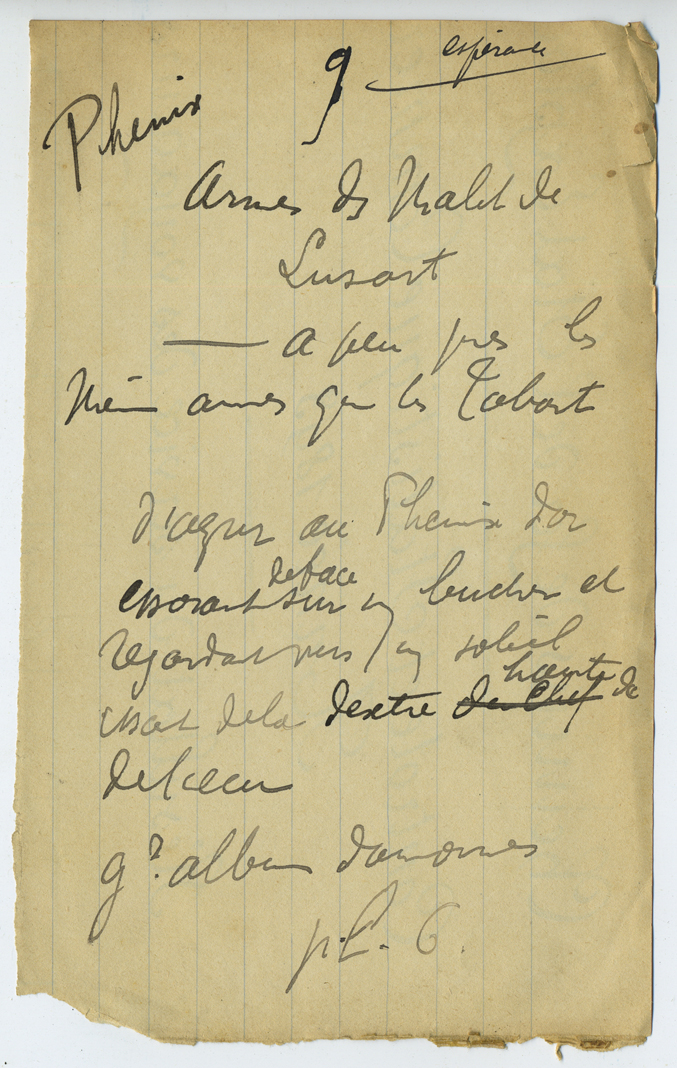 Phenix 9 espérance
Armes de Malet de
Lusart
— a peu pres les
Mêm armes que les Tabart
d'azur au Phenix d'or
de face
essorant sur un bucher et
regardant vers un soleil
haute
dextre du Chef de
de l'ecu
gd. album d'armoiries
pl. 6.